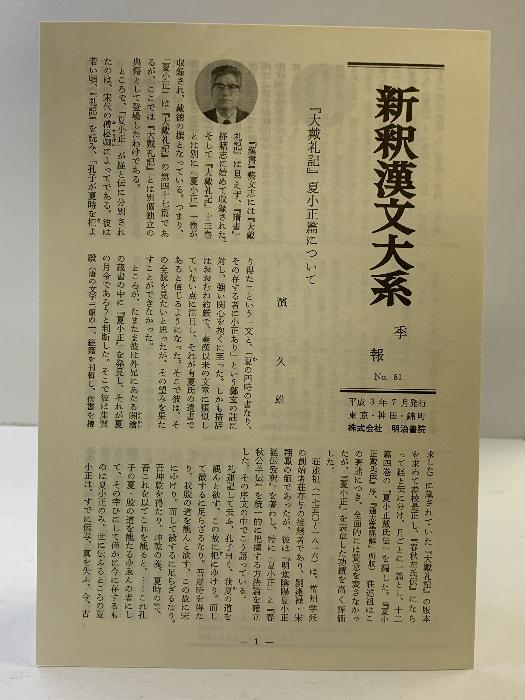 新釈漢文大系
季報
No. 61
平成3年7月発行
東京・神田・錦町
株式会社 明治書院
『大戴礼記』夏小正篇について
濱 久雄
『漢書』藝文志には『大戴
礼記』は見えず、『隋書』
経籍志に始めて収録された。
そして『大戴礼記』十三巻
とは別に『夏小正』一巻が
収録され、戴徳の撰となっている。つまり、
『夏小正』は『大戴礼記』の第四十七篇であ
るが、ここでは『大戴礼記』とは別個独立の
典籍として登場したわけである。
ところで、『夏小正』が経と伝に分別され
たのは、宋代の傅崧卿によってである。彼は
若い頃、『礼記』を読み、「孔子が夏時を杞よ
り得た」という一文と、「夏の四時の書なり、
その存する者に小正あり」という鄭玄の註に
対し、強い関心を抱くに至った。しかも措辞
はおおむね約厳で、秦漢以来の文章に類似し
ていない点に注目し、それが有夏氏の遺書で
あると信じるようになった。そこで彼は、そ
の全貌を見たいと思ったが、その望みを果た
すことができなかった。
ところが、たまたま彼は外兄にあたる関澮
の蔵書の中に『夏小正』を発見し、それが夏
の月令であろうと判断した。そこで彼は集賢
殿（唐の文字三館の一、経籍を刊輯し、佚書を捜
求した）に蔵されていた『大戴礼記』の版本
を求めて参校是正し、『春秋左氏伝』になら
って経と伝に分け、月ごとに一篇とし、十二
篇四巻の『夏小正戴氏伝』を編した。（『夏小
正戴氏伝』序、『通志堂経解』所収）荘述祖はこ
の著述につき、全面的には賛意を表さなかっ
たが、『夏小正』を表章した功績を高く評価
した。
荘述祖（一七五〇—一八一六）は、常州学派
の創始者荘存与の後継者であり、劉逢禄・宋
翔鳳の師であったが、彼は『明堂陰陽夏小正
経伝攷釈』を著わし、特に『夏小正』と『春
秋公羊伝』を統一的に把握する方法論を確立
した。その序文の中でこう語っている。
礼運記して云ふ、孔子曰く、我夏の道を
観んと欲す、この故に杞にゆけり。而し
て徴するに足らざるなり。吾夏時を得た
り。我殷の道を観んと欲す、この故に宋
にゆけり。而して徴するに足らざるなり。
吾坤乾を得たり。坤乾の義、夏時の等、
吾これを以てこれを観ると。……これ孔
子の夏・殷の道を観たるゆゑんの者にし
て、その学ひにして僅かに今に存するも
のは夏小正のみ。世に伝ふるところの夏
小正は、すでに伝を 、真を失ふ。今、古
— 1 —